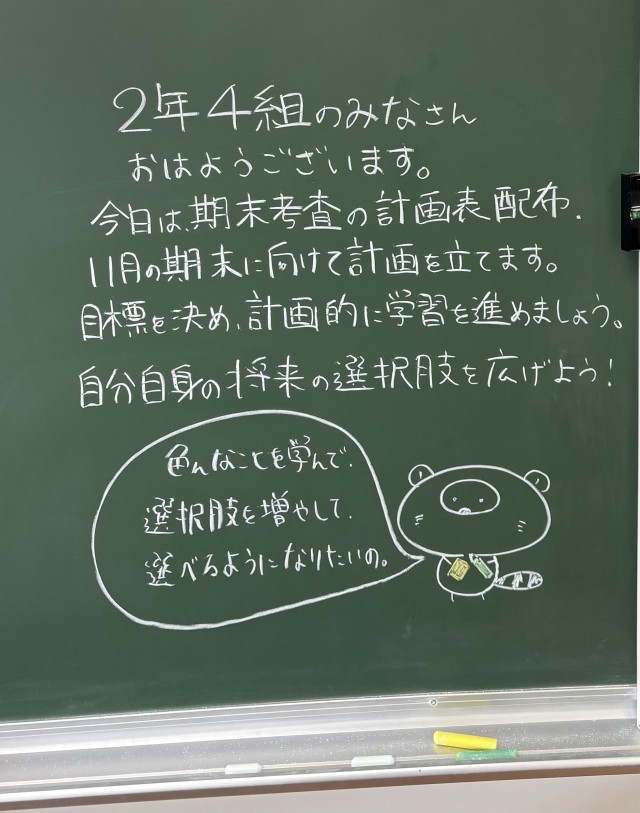 2年4組のみなさん
おはようございます。
今日は、期末考査の計画表配布.
11月の期末に向けて計画を立てます。
目標を決め、計画的に学習を進めましょう。
自分自身の将来の選択肢を広げよう!
色んなことを学んで、
選択肢を増やして、
選べるようになりたいの。